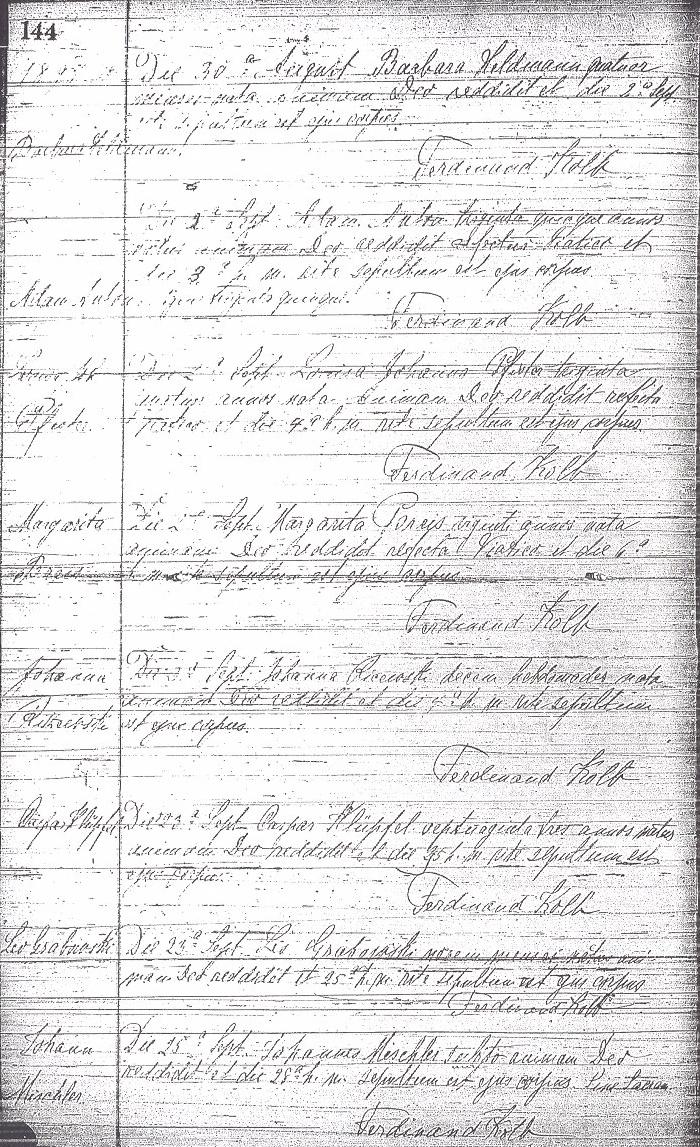 144
Die 30ª August Barbara Heldmann quatuor
menses nata animam Deo reddidit et die 2ª Sept.
rite sepultum est ejus corpus.
Barbara Heldmann.
Ferdinand Kolb
Die 2ª Sept. Adam triginta quinque annos
natus animam Deo reddidit refectus Viatico et
die 3ª h. m. rite sepultum est ejus corpus.
Adam
Ferdinand Kolb
Die Sept. Louisa Johanna Pfister triginta
annos nata animam Deo reddidit refecta
Viatico et die 4ª h. m. rite sepultum est ejus corpus.
Ferdinand Kolb
Margarita
Die Sept. Margarita annos nata
animam Deo reddidit refecta Viatico et die 6ª
h. m. rite sepultum est ejus corpus.
Ferdinand Kolb
Johanna
Die Sept. Johanna decem hebdomades nata
animam Deo reddidit et die h. m. rite sepultum
est ejus corpus.
Ferdinand Kolb
Caspar Klüpfel
Die 23ª Sept. Caspar Klüpfel septuaginta tres annos natus
animam Deo reddidit et die 25 h. m. rite sepultum est
ejus corpus.
Ferdinand Kolb
Leo Grabowski
Die 23ª Sept. Leo Grabowski novem menses natus ani-
mam Deo reddidit et 25ª h. m. rite sepultum est ejus corpus
Ferdinand Kolb
Johann
Mischler
Die 25ª Sept. Johannes Mischler subito animam Deo
reddidit et die 28ª h. m. sepultum est ejus corpus. Sine Sacram.
Ferdinand Kolb